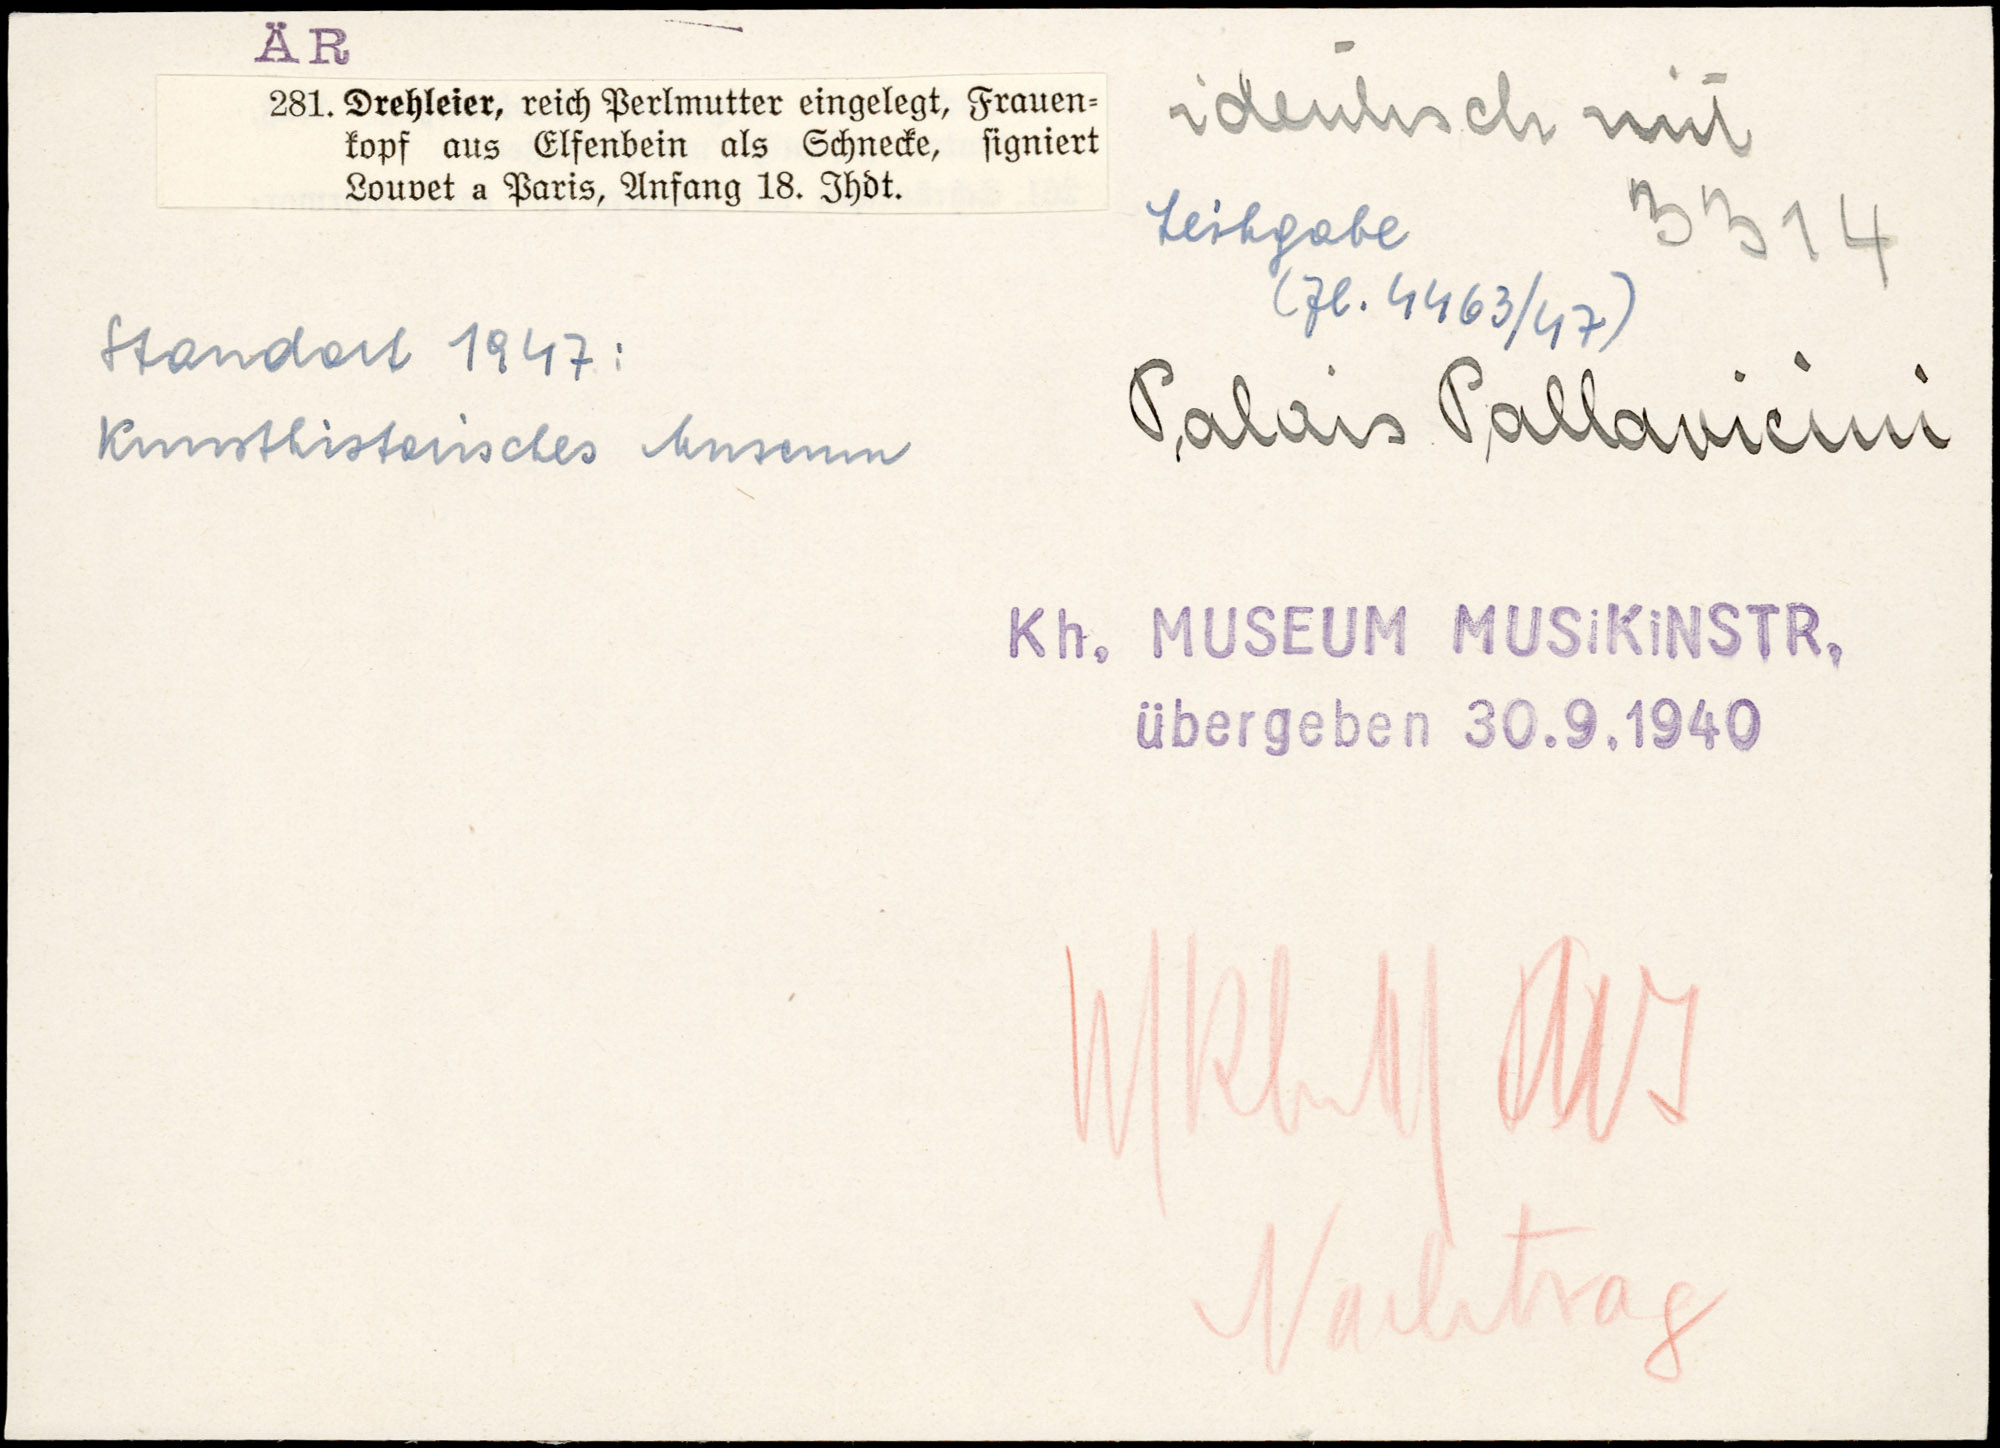 ÄR
281. Drehleier, reich Perlmutter eingelegt, Frauen-
kopf aus Elfenbein als Schnecke, signiert
Louvet a Paris, Anfang 18. Jhdt.
identisch mit
3314
Leihgabe
(Zl. 4463/47)
Standort 1947:
Kunsthistorisches Museum
Palais Pallavicini
Kh. MUSEUM MUSiKiNSTR.
übergeben 30.9.1940
Nachtrag